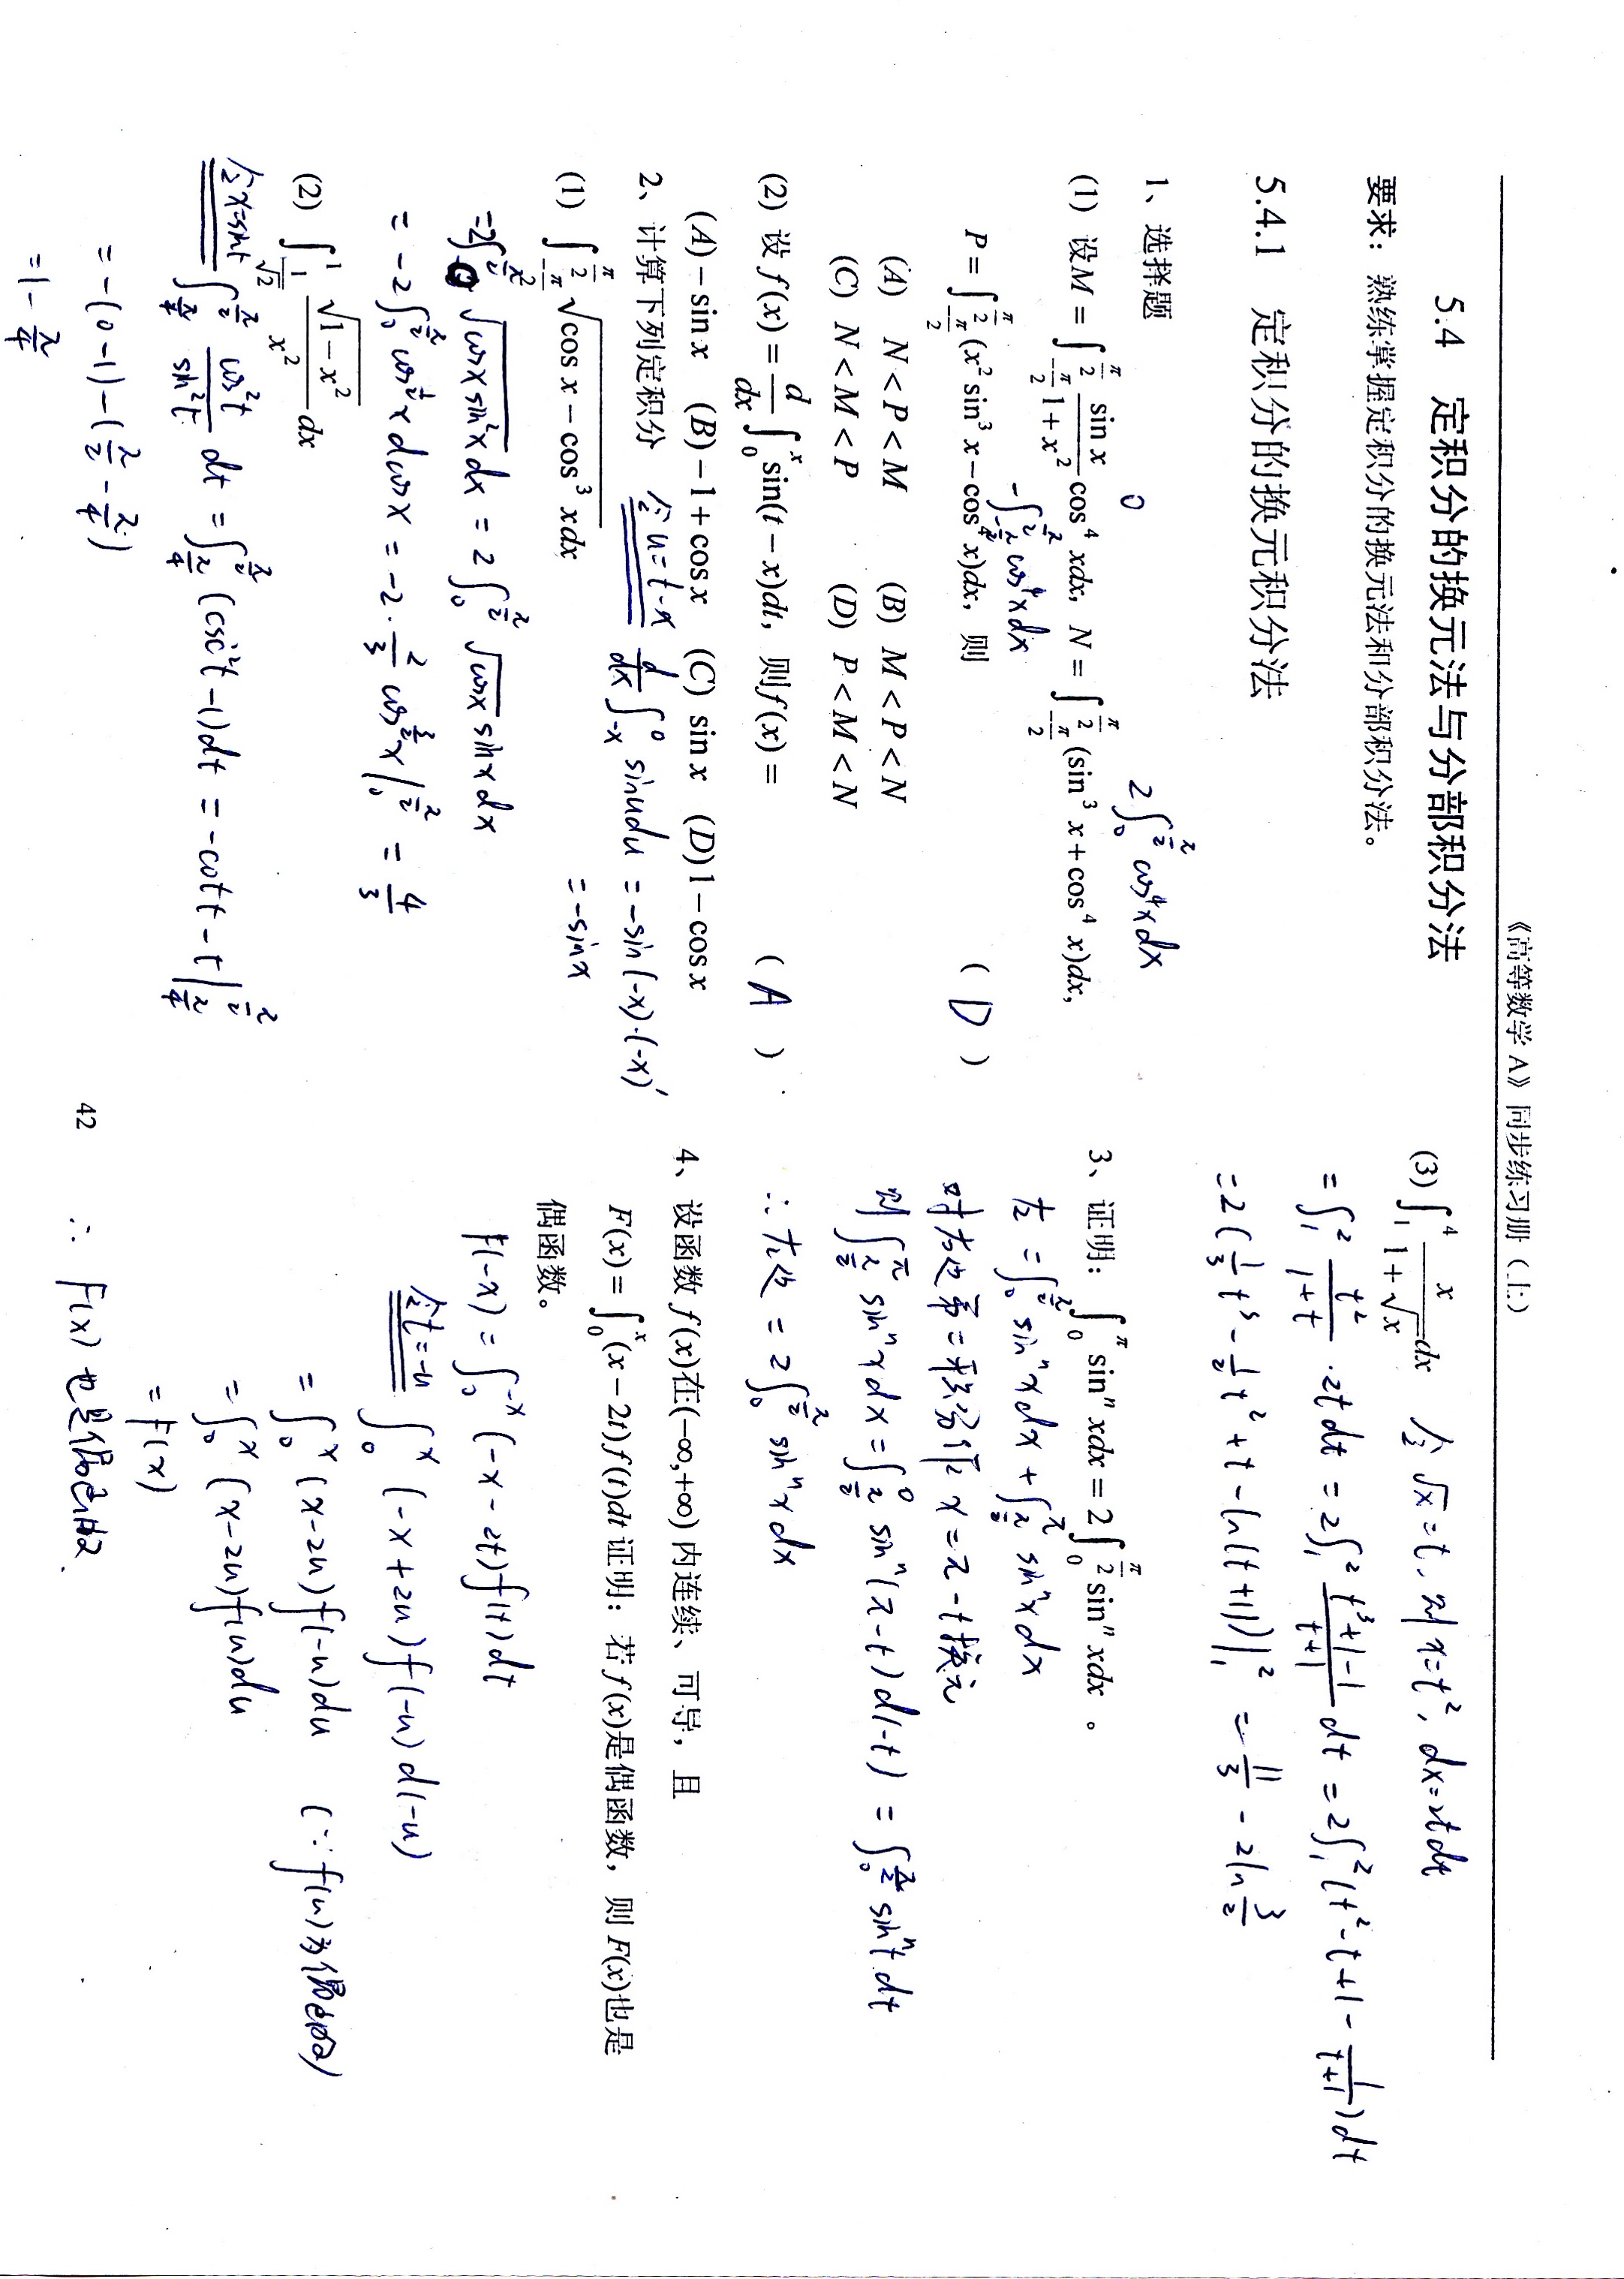 《高等数学 A》同步练习册（上）
5.4 定积分的换元法与分部积分法
要求：熟练掌握定积分的换元法和分部积分法。
5.4.1 定积分的换元积分法
1、选择题
0
2∫_0^{π/2} cos⁴xdx
(1) 设M = ∫_{-π/2}^{π/2} \frac{sin x}{1+x²} cos⁴ xdx, N = ∫_{-π/2}^{π/2} (sin³ x+cos⁴ x)dx,
-∫_{-π/2}^{π/2} cos⁴xdx
P = ∫_{-π/2}^{π/2} (x² sin³ x−cos⁴ x)dx, 则 ( D )
(A) N < P < M (B) M < P < N
(C) N < M < P (D) P < M < N
(2) 设 f(x) = \frac{d}{dx} ∫_0^x sin(t−x)dt, 则f(x) = ( A )
(A)−sin x (B)−1+cos x (C) sin x (D)1−cos x
令u=t-x \frac{d}{dx}∫_{-x}^0 sinudu = -sin(-x)·(-x)'
= -sinx
2、计算下列定积分
(1) ∫_{-π/2}^{π/2} √(cos x − cos³ x)dx
=2∫_0^{π/2} √(cosxsin²x)dx = 2∫_0^{π/2} √(cosx) sinxdx
= -2∫_0^{π/2} cos^{1/2}xdcosx = -2·\frac{2}{3}cos^{3/2}x|_0^{π/2} = \frac{4}{3}
(2) ∫_{1/√2}^1 \frac{√(1−x²)}{x²}dx
令x=sint ∫_{π/4}^{π/2} \frac{cos²t}{sin²t} dt = ∫_{π/4}^{π/2} (csc²t-1)dt = -cott-t|_{π/4}^{π/2}
= -(0-1)-(\frac{π}{2}-\frac{π}{4})
=1-\frac{π}{4}
(3) ∫_1^4 \frac{x}{1+√x}dx 令√x=t, 则x=t², dx=2tdt
=∫_1^2 \frac{t²}{1+t}·2tdt = 2∫_1^2 \frac{t³+1-1}{t+1}dt = 2∫_1^2(t²-t+1-\frac{1}{t+1})dt
=2(\frac{1}{3}t³-\frac{1}{2}t²+t-ln(t+1))|_1^2 = \frac{11}{3}-2ln\frac{3}{2}
3、证明：∫_0^π sinⁿ xdx = 2∫_0^{π/2} sinⁿ xdx 。
左 =∫_0^{π/2} sinⁿxdx+∫_{π/2}^π sinⁿxdx
对右边第二积分作x=π-t换元
则∫_{π/2}^π sinⁿxdx=∫_{π/2}^0 sinⁿ(π-t)d(-t) = ∫_0^{π/2} sinⁿtdt
∴左边 = 2∫_0^{π/2} sinⁿxdx
4、设函数 f(x)在(−∞,+∞) 内连续、可导，且
F(x) = ∫_0^x (x−2t)f(t)dt 证明：若 f(x)是偶函数，则 F(x)也是
偶函数。
F(-x) = ∫_0^{-x} (-x-2t)f(t)dt
令t=-u ∫_0^x (-x+2u)f(-u)d(-u)
= ∫_0^x (x-2u)f(-u)du (∵f(u)为偶函数)
=∫_0^x (x-2u)f(u)du
= F(x)
∴ F(x)也是偶函数.
42